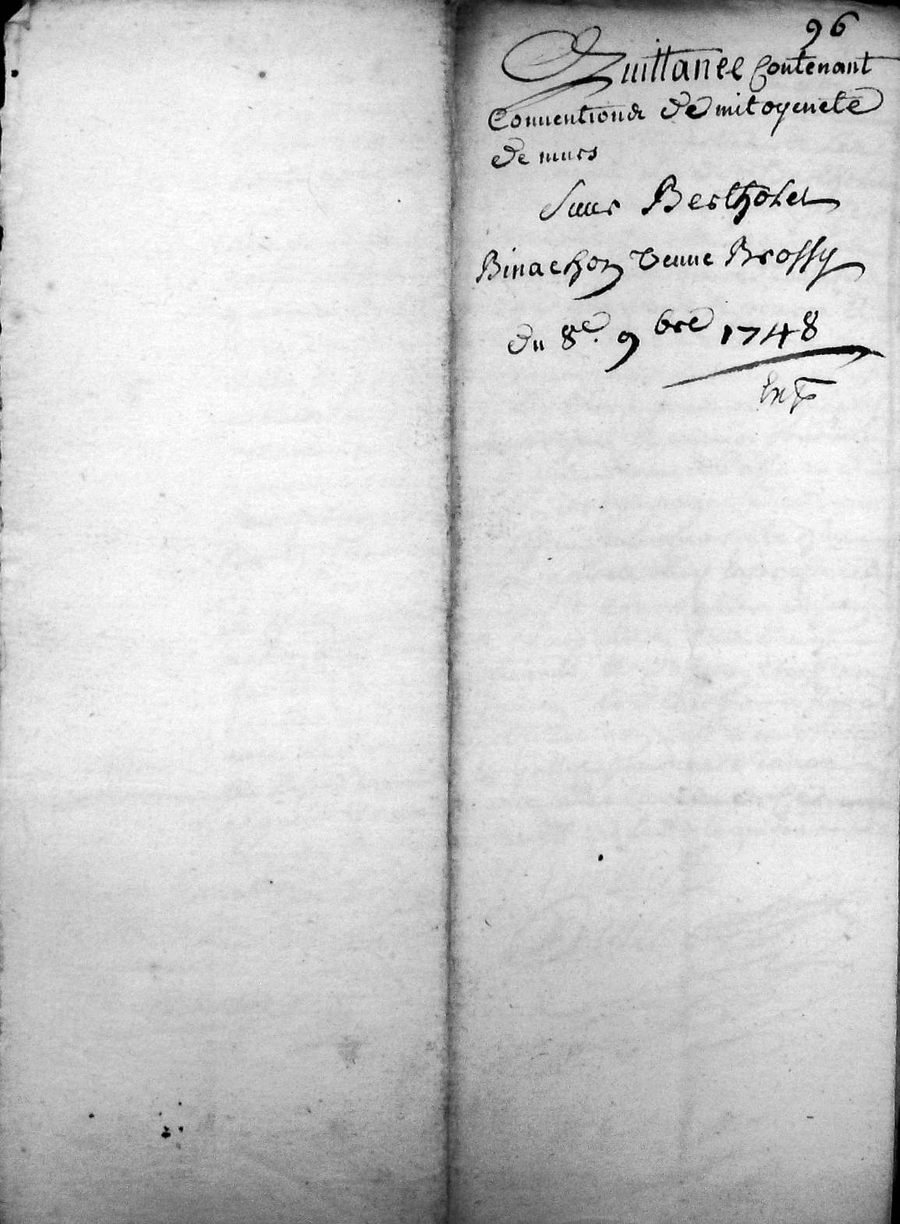 96
Quittance Contenant
Conventions de mitoyeneté
de murs
Sieur Bertholet
Binachon veuve Brossy
du 8e. 9bre 1748